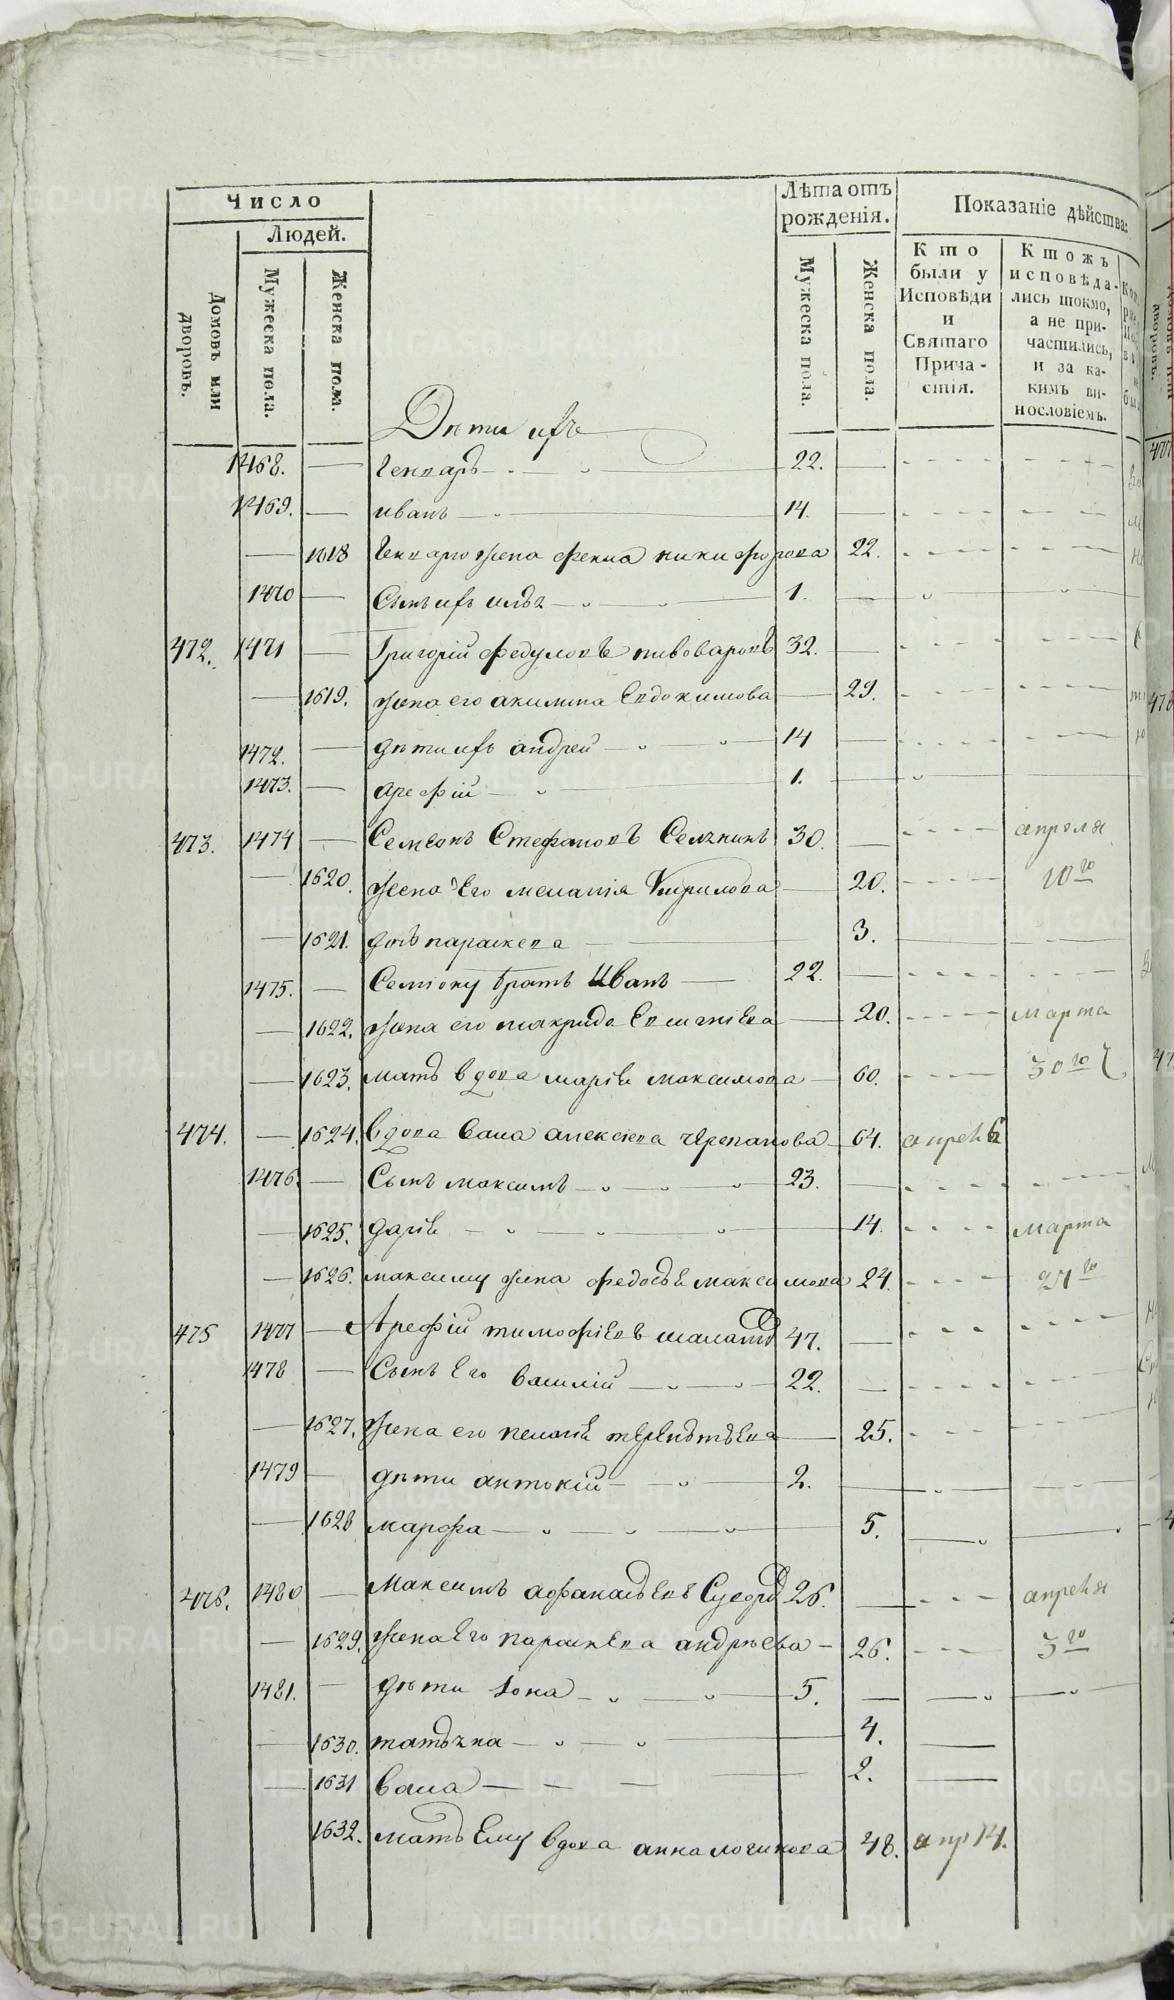 Число
Людей.
Домовъ или дворовъ.
Мужеска пола.
Женска пола.
Лѣта отъ рожденія.
Мужеска пола.
Женска пола.
Показаніе дѣйства:
Кто были у Исповѣди и Святаго Причастія.
Ктожъ исповѣдались токмо, а не причастились, и за какимъ винословіемъ.
Дѣти ихъ
1468. 22.
1469. иванъ 14.
1618 жена фекла никифорова 22.
1470 Сынъ ихъ 1.
472. 1471 Григорій федуловъ пивоваровъ 32.
1619. жена его акилина Евдокимова 29.
1472. дѣти ихъ андрей 14
1473. арефій 1.
473. 1474 Семеонъ Стефановъ 30. апреля
1620. жена Его меланія Кирилова 20. 10го
1621. дочь параскева 3.
1475. Семіону братъ Иванъ 22.
1622. жена его макрида 20. марта
1623. мать вдова маріѣ максимова 60. 30го
474. 1624. вдова васа алексіева черепанова 64. апрель 6
1476. Сынъ максимъ 23.
1625. даріѣ 14. марта
1626. максиму жена федосья максимова 24. 27го
475 1477 Арефій тимофіевъ 47.
1478 Сынъ Его василій 22.
1627. жена его пелагіѣ терентьева 25.
1479 дѣти 2.
1628 марфа 5.
476. 1480 Максимъ афанасьевъ 26. апреля
1629. жена Его параскева андрѣева 26. 3го
1481. дѣти Іона 5.
1630. татьяна 4.
1631 васа 2.
1632. мать Ему вдова анна логинова 48. апр 14.
METRIKI.GASO-URAL.RU